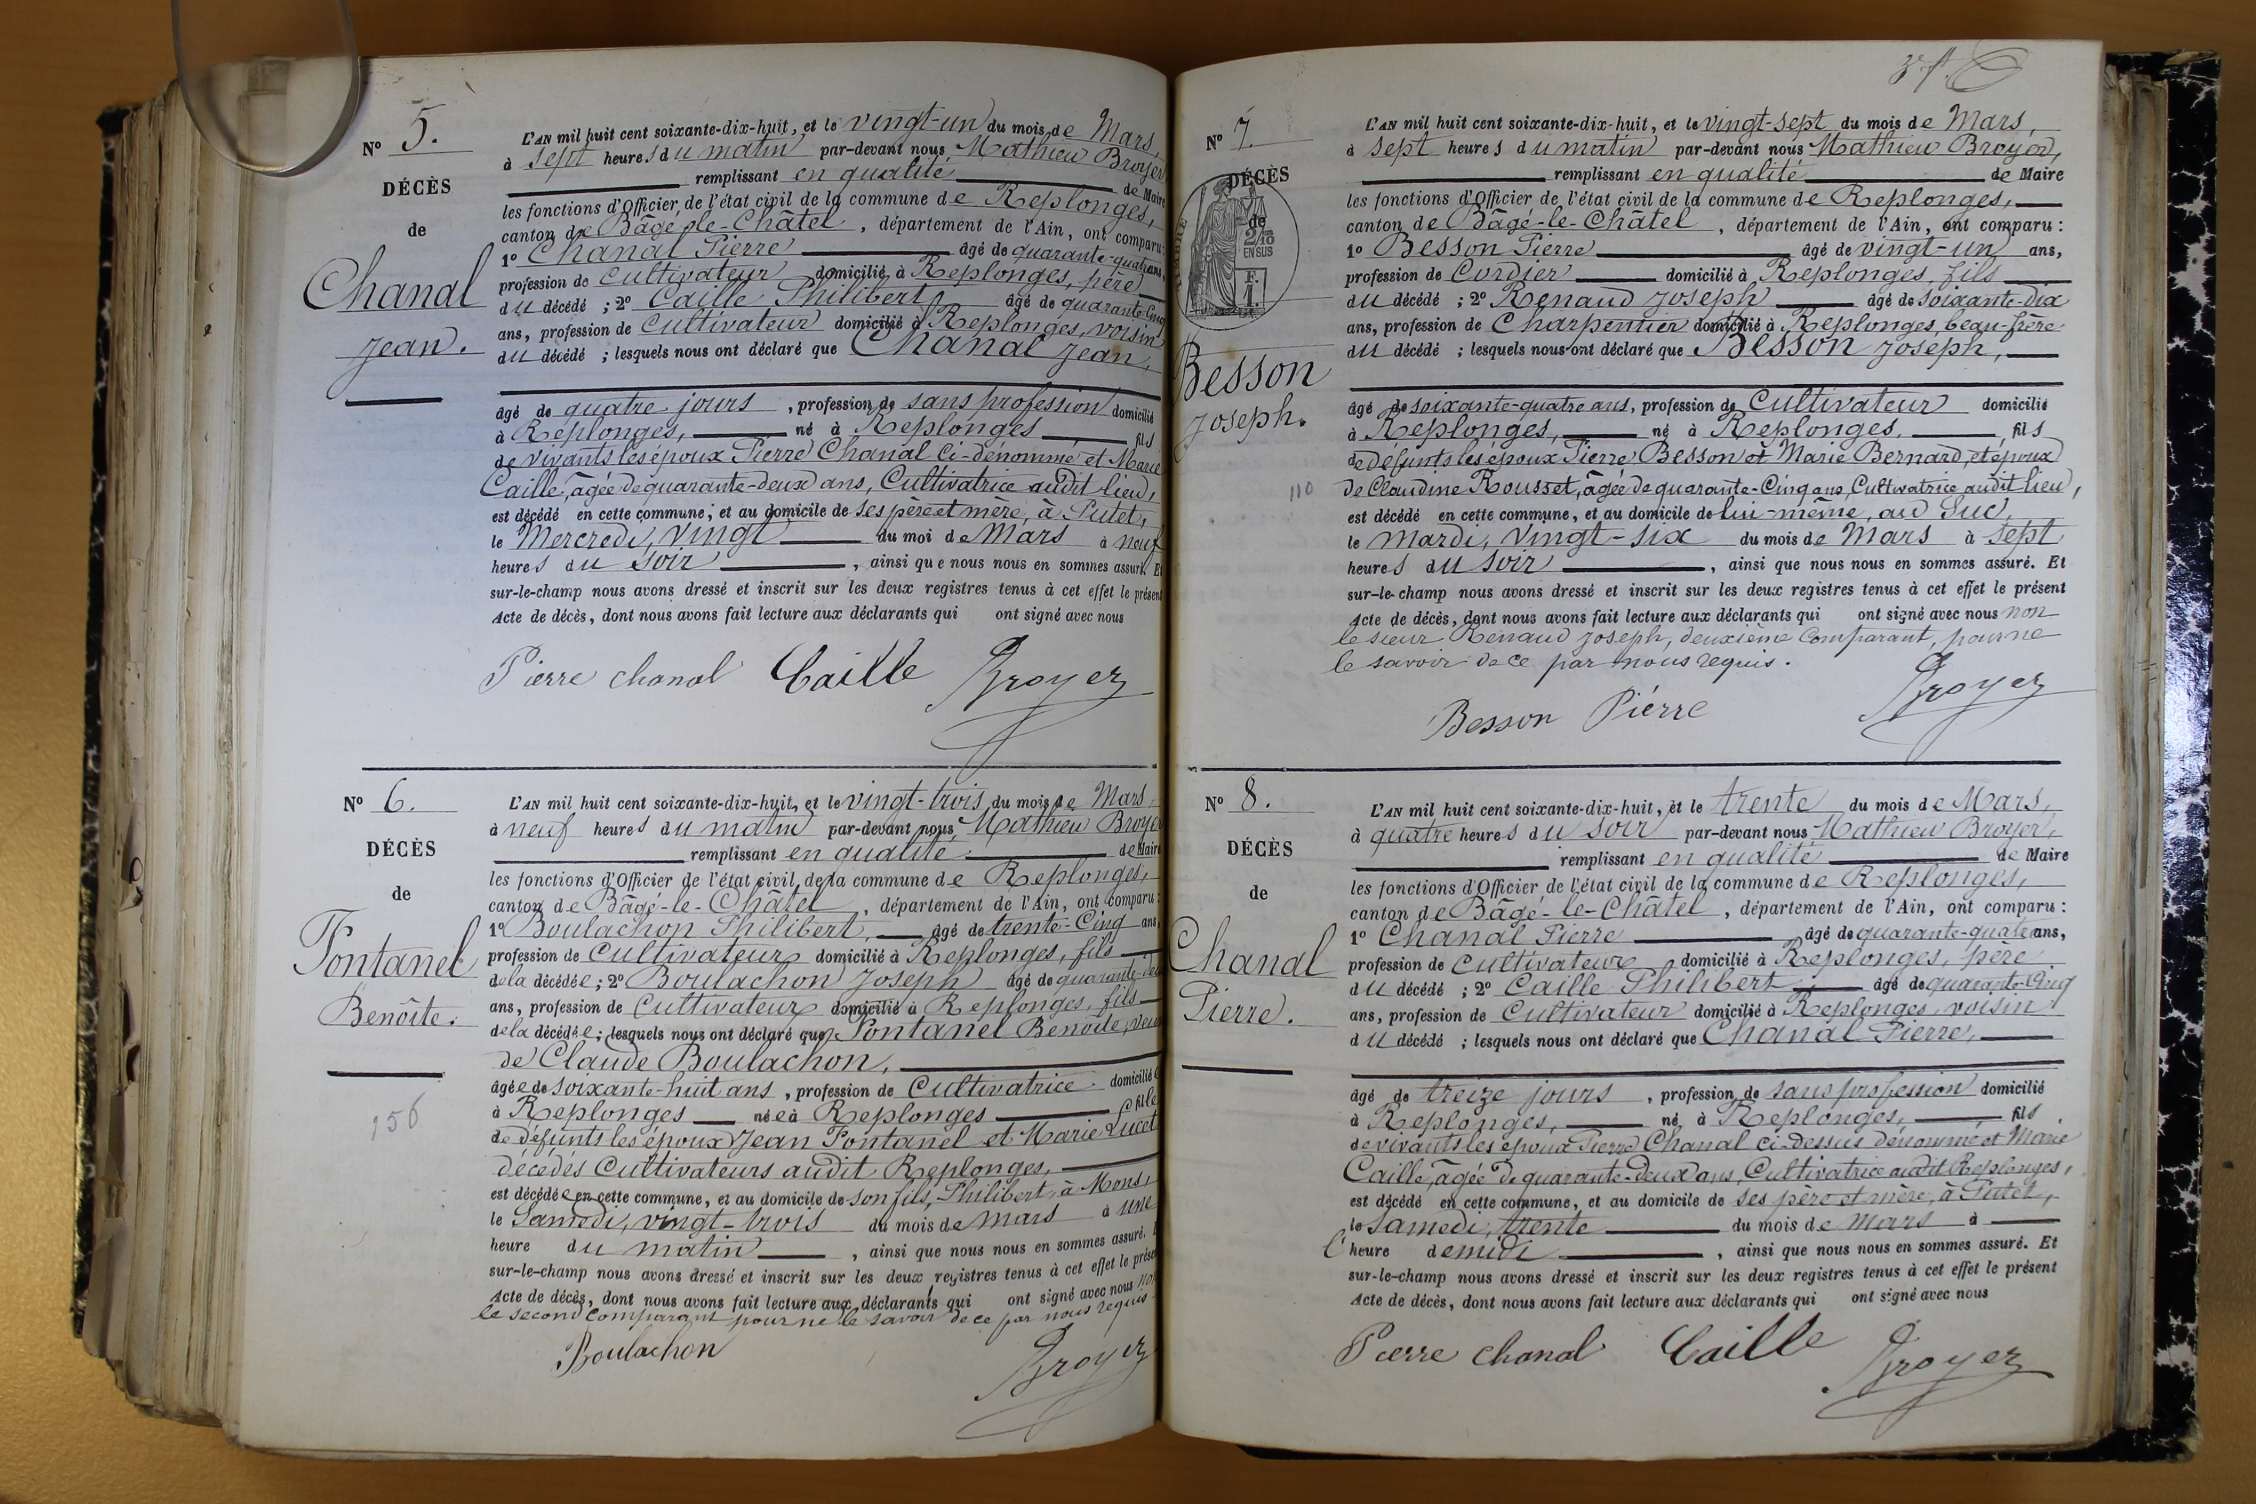 N° 5.
DÉCÈS
de
Chanal
Jean.
L'AN mil huit cent soixante-dix-huit, et le vingt-un du mois de Mars,
à sept heures du matin par-devant nous Mathieu Broyer
remplissant en qualité de Maire
les fonctions d'Officier de l'état civil de la commune de Replonges,
canton de Bâgé-le-Châtel, département de l'Ain, ont comparu:
1° Chanal Pierre âgé de quarante-quatre ans,
profession de Cultivateur domicilié à Replonges, père
du décédé ; 2° Caille Philibert âgé de quarante-Cinq
ans, profession de Cultivateur domicilié à Replonges, voisin
du décédé ; lesquels nous ont déclaré que Chanal Jean,
âgé de quatre jours, profession de sans profession domicilié
à Replonges, né à Replonges fils
de vivants les époux Pierre Chanal ci-dénommé et Marie
Caille, âgée de quarante-deux ans, Cultivatrice audit lieu,
est décédé en cette commune, et au domicile de ses père et mère, à Putet,
le Mercredi, vingt du moi de Mars à neuf
heures du soir, ainsi que nous nous en sommes assuré. Et
sur-le-champ nous avons dressé et inscrit sur les deux registres tenus à cet effet le présent
Acte de décès, dont nous avons fait lecture aux déclarants qui ont signé avec nous
Pierre Chanal Caille Broyer
N° 6.
DÉCÈS
de
Fontanel
Benoîte.
156
L'AN mil huit cent soixante-dix-huit, et le vingt-trois du mois de Mars,
à neuf heures du matin par-devant nous Mathieu Broyer
remplissant en qualité de Maire
les fonctions d'Officier de l'état civil de la commune de Replonges,
canton de Bâgé-le-Châtel, département de l'Ain, ont comparu:
1° Boulachon Philibert, âgé de trente-Cinq ans,
profession de Cultivateur domicilié à Replonges, fils
de la décédée; 2° Boulachon Joseph âgé de quarante-
ans, profession de Cultivateur domicilié à Replonges, fils
de la décédée; lesquels nous ont déclaré que Fontanel Benoîte,
de Claude Boulachon,
âgée de soixante-huit ans, profession de Cultivatrice domicilié
à Replonges née à Replonges fille
de défunts les époux Jean Fontanel et Marie Lucet
décédés Cultivateurs audit Replonges,
est décédée en cette commune, et au domicile de son fils, Philibert, à Mons,
le Samedi, vingt-trois du mois de mars à une
heure du matin, ainsi que nous nous en sommes assuré.
sur-le-champ nous avons dressé et inscrit sur les deux registres tenus à cet effet le présent
Acte de décès, dont nous avons fait lecture aux déclarants qui ont signé avec nous non
le second Comparant pour ne le savoir de ce par nous requis
Boulachon Broyer
N° 7.
DÉCÈS
de
2/10
EN SUS
F.
1.
Besson
Joseph.
110
L'AN mil huit cent soixante-dix-huit, et le vingt-sept du mois de Mars,
à sept heures du matin par-devant nous Mathieu Broyer,
remplissant en qualité de Maire
les fonctions d'Officier de l'état civil de la commune de Replonges,
canton de Bâgé-le-Châtel, département de l'Ain, ont comparu:
1° Besson Pierre âgé de vingt-un ans,
profession de Cordier domicilié à Replonges, fils
du décédé ; 2° Renaud Joseph âgé de soixante-dix
ans, profession de Charpentier domicilié à Replonges, beau-frère
du décédé ; lesquels nous ont déclaré que Besson Joseph,
âgé de soixante-quatre ans, profession de Cultivateur domicilié
à Replonges, né à Replonges, fils
de défunts les époux Pierre Besson et Marie Bernard, et époux
de Claudine Rousset, âgée de quarante-Cinq ans, Cultivatrice audit lieu,
est décédé en cette commune, et au domicile de lui-même, au Suc,
le mardi, vingt-six du mois de Mars à sept
heures du soir, ainsi que nous nous en sommes assuré. Et
sur-le-champ nous avons dressé et inscrit sur les deux registres tenus à cet effet le présent
Acte de décès, dont nous avons fait lecture aux déclarants qui ont signé avec nous non
le sieur Renaud Joseph, deuxième Comparant, pour ne
le savoir de ce par nous requis.
Besson Pierre Broyer
N° 8.
DÉCÈS
de
Chanal
Pierre.
L'AN mil huit cent soixante-dix-huit, et le trente du mois de Mars,
à quatre heures du soir par-devant nous Mathieu Broyer,
remplissant en qualité de Maire
les fonctions d'Officier de l'état civil de la commune de Replonges,
canton de Bâgé-le-Châtel, département de l'Ain, ont comparu:
1° Chanal Pierre âgé de quarante-quatre ans,
profession de Cultivateur domicilié à Replonges, père
du décédé ; 2° Caille Philibert, âgé de quarante-Cinq
ans, profession de Cultivateur domicilié à Replonges, voisin
du décédé ; lesquels nous ont déclaré que Chanal Pierre,
âgé de treize jours, profession de sans profession domicilié
à Replonges, né à Replonges, fils
de vivants les époux Pierre Chanal ci-dessus dénommé et Marie
Caille, âgée de quarante-deux ans, Cultivatrice audit Replonges,
est décédé en cette commune, et au domicile de ses père et mère, à Putet,
le Samedi, trente du mois de mars à
l'heure de midi, ainsi que nous nous en sommes assuré. Et
sur-le-champ nous avons dressé et inscrit sur les deux registres tenus à cet effet le présent
Acte de décès, dont nous avons fait lecture aux déclarants qui ont signé avec nous
Pierre Chanal Caille Broyer